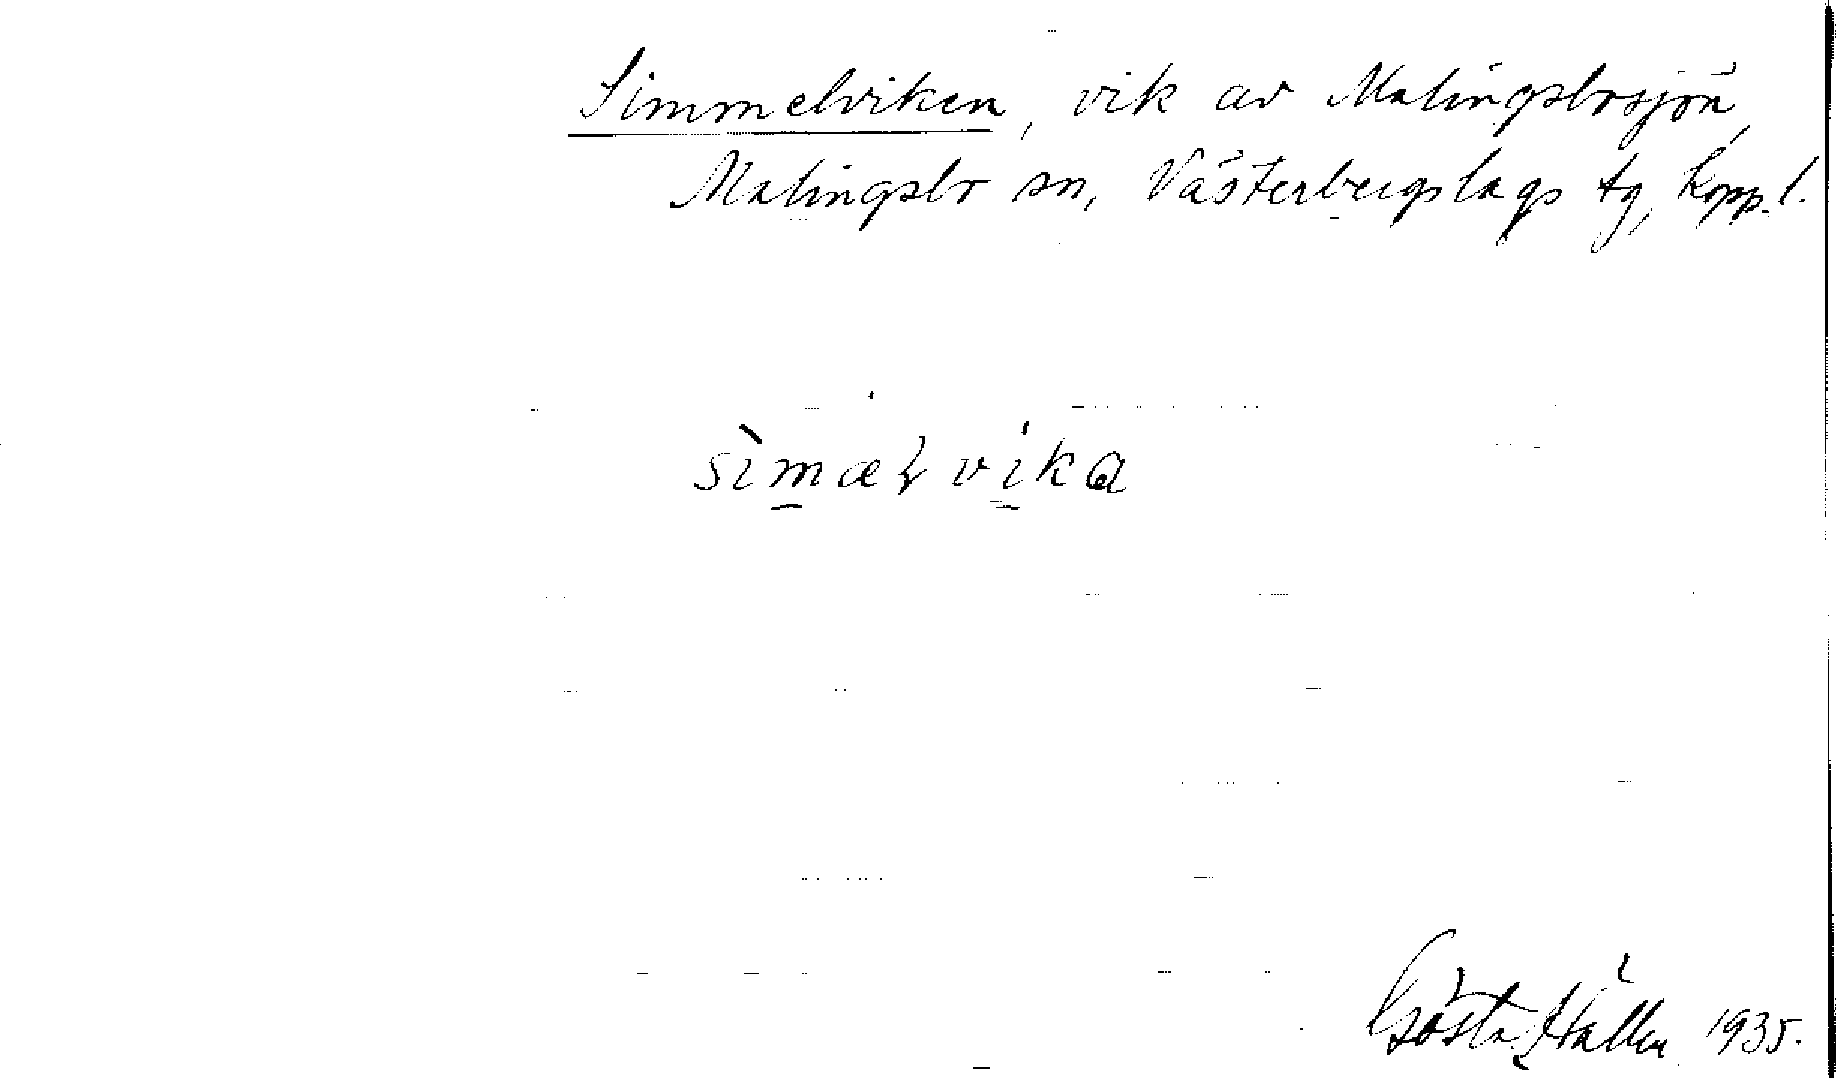 Simmelviken, vik av Malingsbosjön,
Malingsbo sn, Västerbergslags tg, Kopp. l.
sìmæɫvíka
Gösta Hallén 1935.